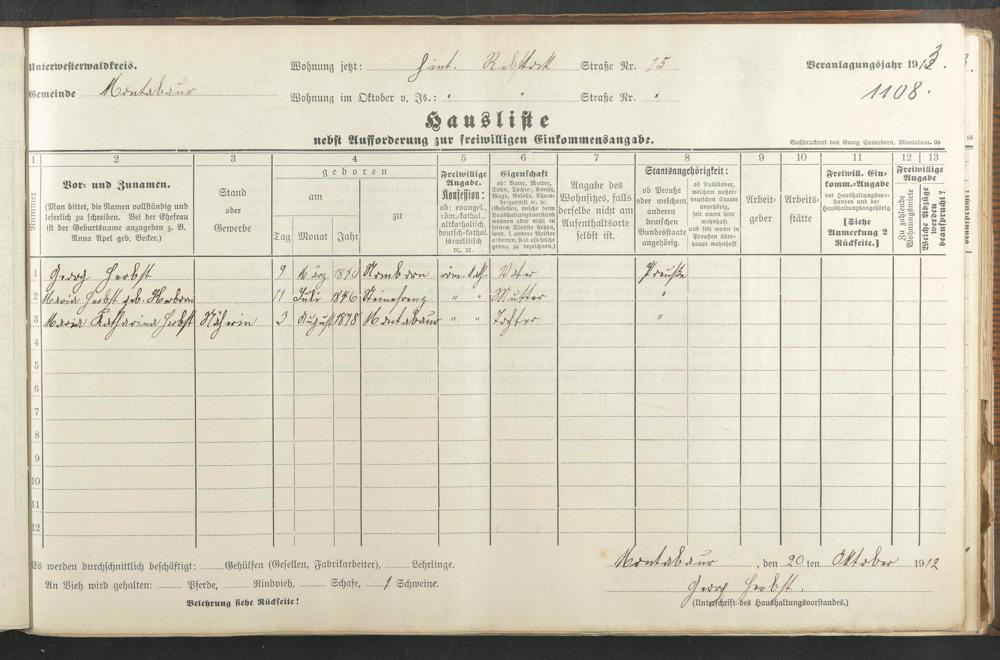 Unterwesterwaldkreis.
Wohnung jetzt: Hint. Rebstock Straße Nr. 15
Veranlagungsjahr 1913.
Gemeinde Montabaur
Wohnung im Oktober v. Js.: " " Straße Nr. "
1108.
Hausliste
nebst Aufforderung zur freiwilligen Einkommensangabe.
Buchdruckerei von Georg Sauerborn, Montabaur.
1 2 3 4 5 6 7 8 9 10 11 12 13
Nummer
Vor- und Zunamen.
(Man bittet, die Namen vollständig und
leserlich zu schreiben. Bei der Ehefrau
ist der Geburtsname anzugeben z. B.
Anna Apel geb. Becker.)
Stand
oder
Gewerbe
geboren
am
Tag Monat Jahr
zu
Freiwillige
Angabe.
Konfession:
ob: evangel.,
röm.-kathol.,
altkatholisch,
deutsch-kathol.
israelitisch
ꝛc. ꝛc.
Eigenschaft
ob: Vater, Mutter,
Sohn, Tochter, Knecht,
Magd, Geselle,
Angabe des
Wohnsitzes, falls
derselbe nicht am
Aufenthaltsorte
selbst ist.
Staatsangehörigkeit:
ob Preuße
oder welchem
anderen
deutschen
Bundesstaate
angehörig.
ob Ausländer,
welchem außer-
deutschen Staate
angehörig,
seit wann hier
wohnhaft und
seit wann in
Preußen über-
haupt wohnhaft
Arbeit-
geber
Arbeits-
stätte
Freiwill. Ein-
komm.-Angabe
des Haushaltungsvor-
standes und der
Haushaltungsangehörig.
[Siehe
Anmerkung 2
Rückseite.]
Freiwillige
Angabe
Zu zahlende
Wohnungsmiete
Welche Abzüge
werden
beansprucht?
1 Georg Herbst 9 März 1850 Nomborn röm. kath. Vater Preuße
2 Maria Herbst geb. 11 Juli 1846 " " Mutter "
3 Maria Katharina Herbst Näherin 3 August 1878 Montabaur " " Tochter "
4
5
6
7
8
9
10
11
12
Es werden durchschnittlich beschäftigt: Gehülfen (Gesellen, Fabrikarbeiter), Lehrlinge.
Montabaur, den 20 ten Oktober 1912
An Vieh wird gehalten: Pferde, Rindvieh, Schafe, 1 Schweine.
Georg Herbst.
Belehrung siehe Rückseite!
(Unterschrift des Haushaltungsvorstandes.)